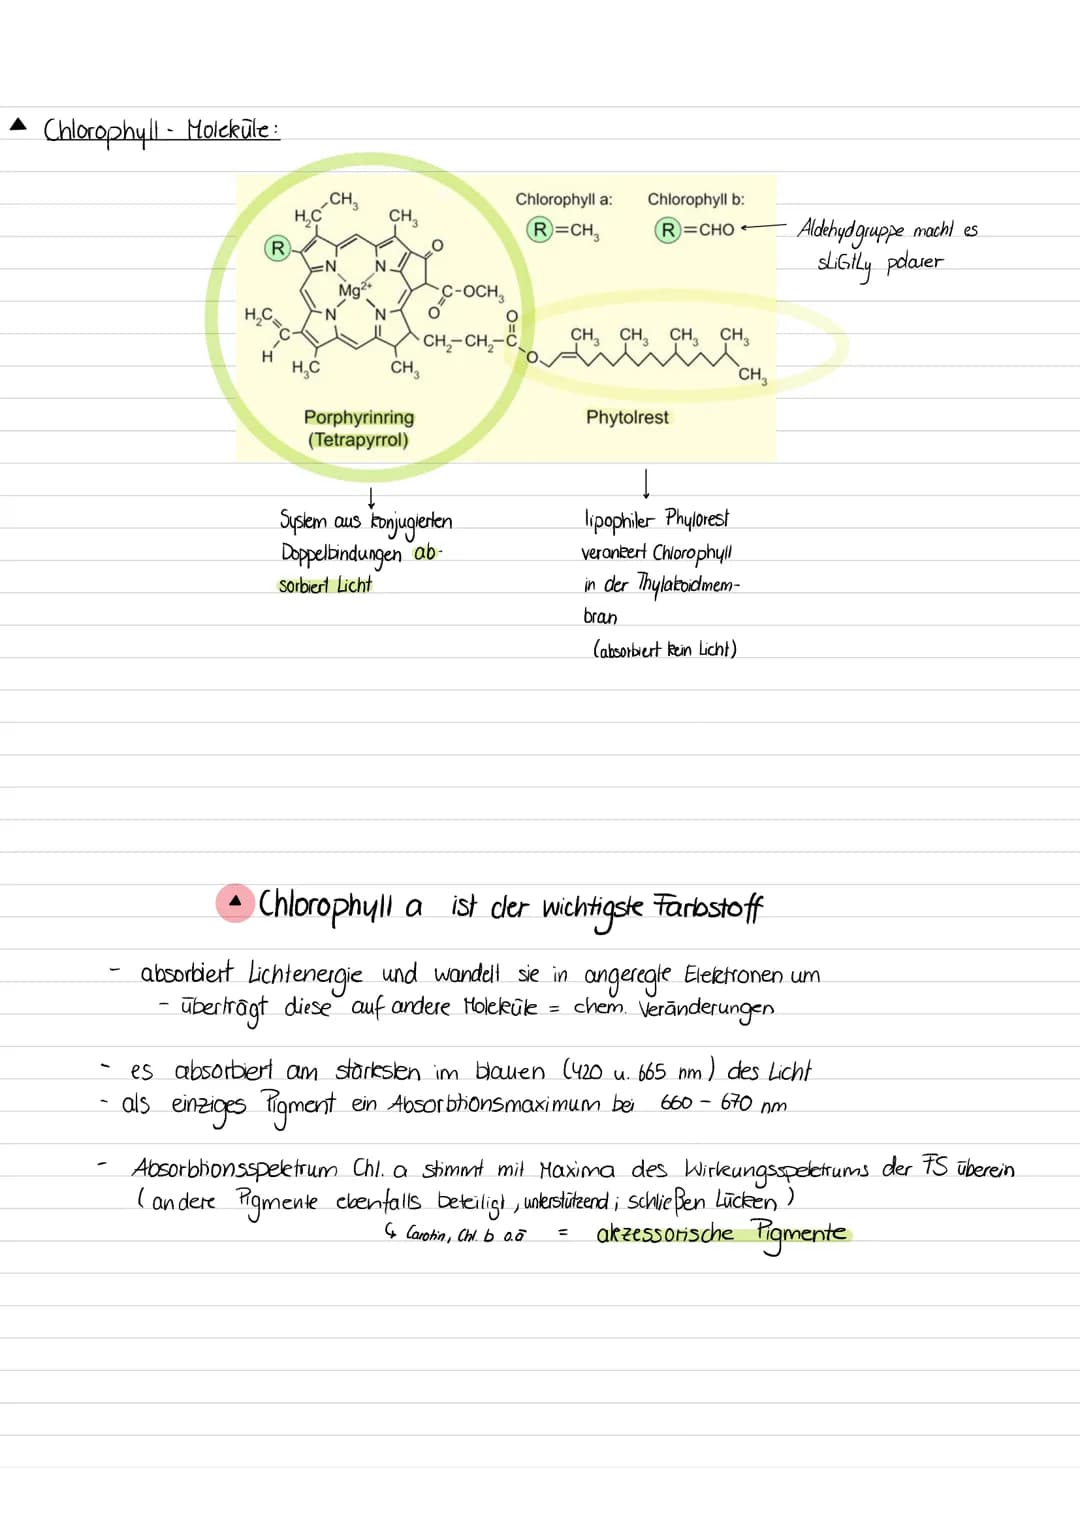 ▲ Chlorophyll - Moleküle:
CH₃
H₂C
CH₃
Chlorophyll a:
Chlorophyll b:
R=CH₃
R=CHO
R
O
N
N
Mg²⁺
C-OCH₃
O
Aldehydgruppe macht es
sLiGtLy polarer
H₂C
C
H
N
N
CH₂-CH₂-C
O
O
CH₃ CH₃ CH₃ CH₃
CH₃
H₃C
CH₃
Porphyrinring
(Tetrapyrrol)
Phytolrest
System aus konjugierten
Doppelbindungen ab-
sorbiert Licht
lipophiler Phylorest
verankert Chlorophyll
in der Thylakoidmem-
bran
(absorbiert kein Licht)
▲ Chlorophyll a ist der wichtigste Farbstoff
- absorbiert Lichtenergie und wandelt sie in angeregte Elektronen um
- überträgt diese auf andere Moleküle = chem. Veränderungen
- es absorbiert am stärksten im blauen (420 u. 665 nm) des Licht
- als einziges Pigment ein Absorbtionsmaximum bei 660 - 670 nm
- Absorbtionsspektrum Chl. a stimmt mit Maxima des Wirkungsspektrums der FS überein
(andere Pigmente ebenfalls beteiligt, unterstützend; schließen Lücken)
↳ Carotin, Chl. b o.ä = akzessorische Pigmente